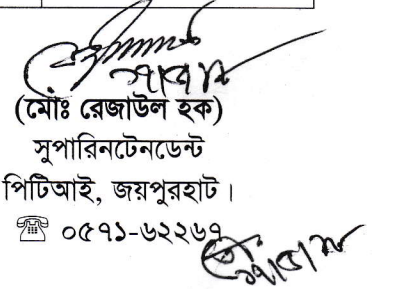 (মোঃ রেজাউল হক)
সুপারিনটেনডেন্ট
পিটিআই, জয়পুরহাট।
☏ ০৫৭১-৬২২৬৭